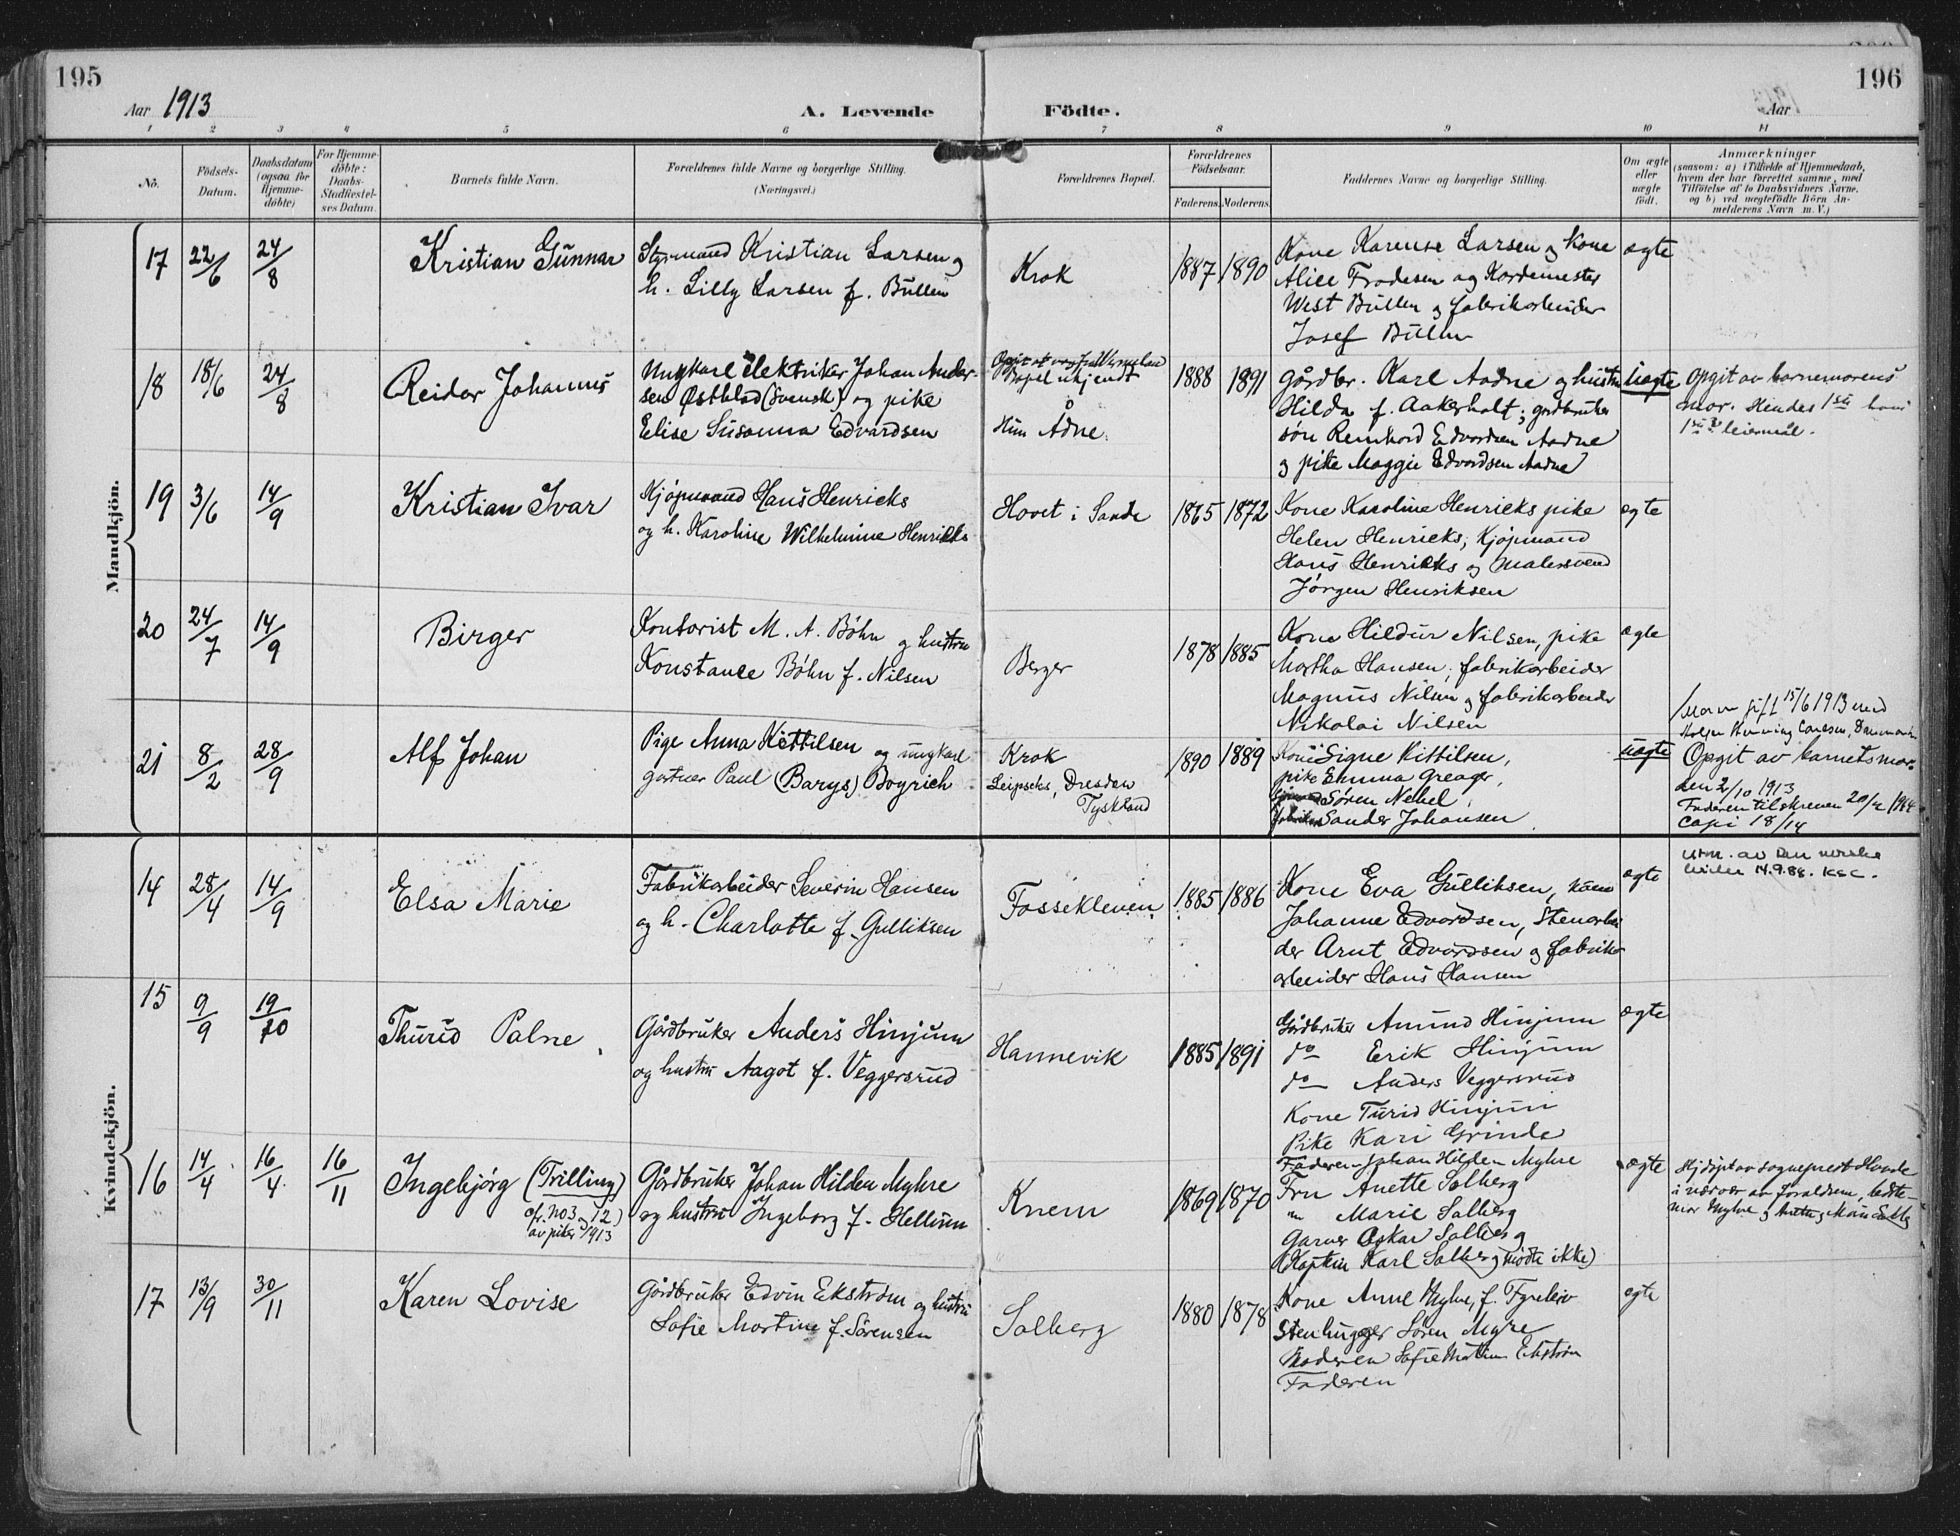 195
196
Aar 1913
A. Levende Födte.
Aar
1 2 3 4 5 6 7 8 9 10 11
No.
Födsels-Datum.
Daabsdatum (ogsaa for Hjemme-döbte)
For Hjemme-döbte: Daabs-Stadfæstel-ses Datum.
Barnets fulde Navn.
Forældrenes fulde Navne og borgerlige Stilling.
(Næringsvei.)
Forældrenes Bopæl.
Forældrenes Födselsaar.
Faderens. Moderens.
Faddernes Navne og borgerlige Stilling.
Om ægte eller uægte födt.
Anmærkninger
(saasom: a) i Tilfælde af Hjemmedaab,
hvem der har forrettet samme, med
Tilföielse af to Daabsvidners Navne,
og b) ved uægtefödte Börn An-
melderens Navn m. V.)
Mandkjön.
17 22/6 24/8 Kristian Gunnar
Styrmand Kristian Larsen og
h. Lilly Larsen f. Bullen
Krok
1887 1890
Kone Karense Larsen og kone
Alice Fradesen og
West Bullen og fabrikarbeider
Josef Bullen
ægte
18 18/6 24/8 Reidar Johannes
Ungkarl elektriker Johan Ander-
sen Østblad (Svensk) og pike
Elise Susanna Edvardsen
Bopæl ukjendt
Hun Ådne
1888 1891
Gårdbr. Karl Aadne og hustru
Hilda f. Aakerholt; gårdbruker
søn Reinhard Edvardsen Aadne
og pike Maggie Edvardsen Aadne
uægte
Opgit av barnemorens
mor. Hendes 1ste hans
1ste leiermål.
19 3/6 14/9 Kristian Ivar
Kjøpmand Hans Henricks
og h. Karoline Wilhelmine Henricks
Hovet i Sande
1865 1872
Kone Karoline Henricks pike
Helen Henricks; Kjøpmand
Hans Henricks og malersvend
Jørgen Henriksen
ægte
20 24/7 14/9 Birger
Kontorist M. A. Bøhn og hustru
Konstance Bøhn f. Nilsen
Berger
1878 1885
Kone Hildur Nilsen, pike
Martha Hansen, fabrikarbeider
Magnus Nilsen og fabrikarbeider
Nikolai Nilsen
ægte
21 8/2 28/9 Alf Johan
Pige Anna Kittilsen og ungkarl
gartner Paul (Barys) Bogrich
Krok
Dresden
Tyskland
1890 1889
Kone Signe Kittilsen,
pike Emma Greager,
Søren Nebel,
Sander Johansen.
uægte
Moren gift 15/6 1913 med
Opgit av barnets mor
den 2/10 1913
Faderen tilskreven
Copi 18/14
Kvindekjön.
14 28/4 14/9 Elsa Marie
Fabrikarbeider Severin Hansen
og h. Charlotte f. Gulliksen
Fossekleven
1885 1886
Kone Eva Gulliksen, kone
Johanne Edvardsen, Stenarbei
der Arnt Edvardsen og fabrik-
arbeider Hans Hansen
ægte
Utm. av den norske
kirke 14.9.88. KSC.
15 9/9 19/10 Thurid Palne
Gårdbruker Anders Hinjum
og hustru Aagot f. Veggersrud
Hannevik
1885 1891
Gårdbruker Amund Hinjum
do Erik Hinjum
do Anders Veggersrud
Kone Turid Hinjum
Pike Kari Grinde
ægte
16 14/4 16/4 16/11 Ingebjörg (Trilling)
cfr. No 3 og 12)
av piker 1913
Gårdbruker Johan Hilden Myhre
og hustru Ingeborg f. Hellum
Knem
1869 1870
Faderen Johan Hilden Myhre
Fru Anette Solberg
" Marie Solberg
Garver Oskar Solberg
(Kaptein Karl Solberg mødte ikke)
ægte
Hjdøpt av sogneprest Hovde
i nærvær av foreldrene, bedste-
mor Myhre og
17 13/9 30/11 Karen Lovise
Gårdbruker Edvin Ekstrøm og hustru
Sofie Martine f. Sørensen
Solberg
1880 1878
Kone Anne Myhre, f.
Stenhugger Søren Myre
Moderen Sofie Martine Ekstrøm
Faderen
ægte